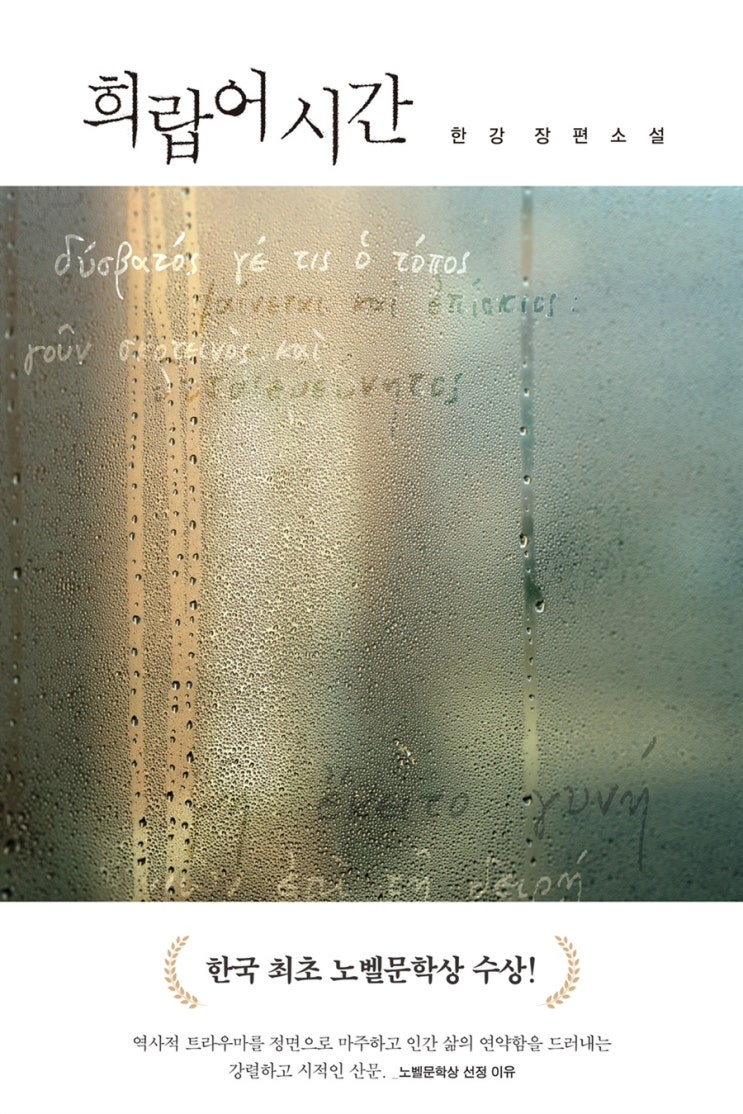 희랍어 시간
한강 장편소설
δύσβατός γέ τις ὁ τόπος
φαίνεται καὶ ἐπίσκιος·
γοῦν σκοτεινὸς καὶ
ἔκειτο γυνή
ἐπὶ τῇ
한국 최초 노벨문학상 수상!
역사적 트라우마를 정면으로 마주하고 인간 삶의 연약함을 드러내는
강렬하고 시적인 산문. _노벨문학상 선정 이유